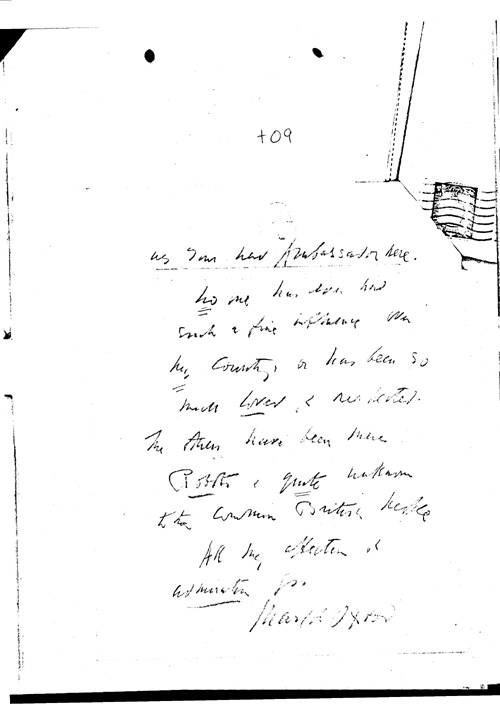 +09
as Your new Ambassador here.
No one has ever had
such a fine influence over
my Country, or has been so
much loved, & respected.
The others have been mere
Robots & quite unknown
to the common British people
All my affection &
admiration for